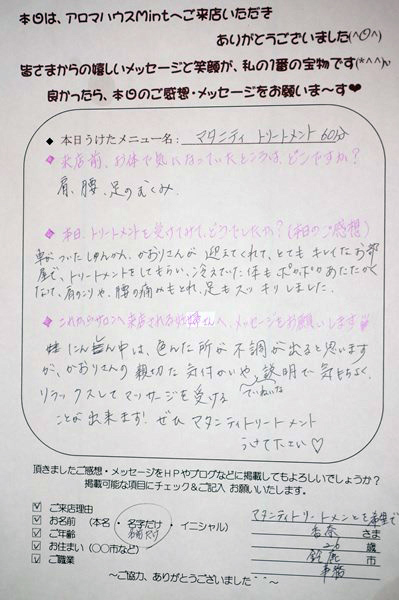 本日は、アロマハウスMintへご来店いただき
ありがとうございました(^O^)
皆さまからの嬉しいメッセージと笑顔が、私の1番の宝物です(*^^*)v
良かったら、本日のご感想・メッセージをお願いま〜す♥
◆ 本日うけたメニュー名: マタニティ トリートメント 60分
◆ 来店前、お体で気になっていたところは、どこですか?
肩、腰、足のむくみ
◆ 本日、トリートメントを受けてみて、どうでしたか?(本日のご感想)
車がついたしゅんかん、かおりさんが 迎えてくれて、とても キレイなお部
屋で、トリートメントをしてもらい、冷えていた体もポカポカあたたかく
なって、肩のこりや、腰の痛みもとれ、足もスッキリしました。
◆ これからサロンへ来店される妊婦さんへ、メッセージをお願いします
にんしん中は、色んな所が不調が出ると思います
が、かおりさんの親切な気付かいや、ていねいな説明で気もちよく、
リラックスしてマッサージを受ける
ことが出来ます! ぜひ マタニティトリートメント
うけて下さい♡
頂きましたご感想・メッセージをHPやブログなどに掲載してもよろしいでしょうか?
掲載可能な項目にチェック&ご記入 お願いいたします。
☑ ご来店理由 マタニティトリートメントを希望で
☑ お名前 (本名・名字だけ・イニシャル) 香奈 さま
☑ ご年齢 26 歳
☑ お住まい (〇〇市など) 鈴鹿 市
☑ ご職業 事務
〜ご協力、ありがとうございました^ ^〜